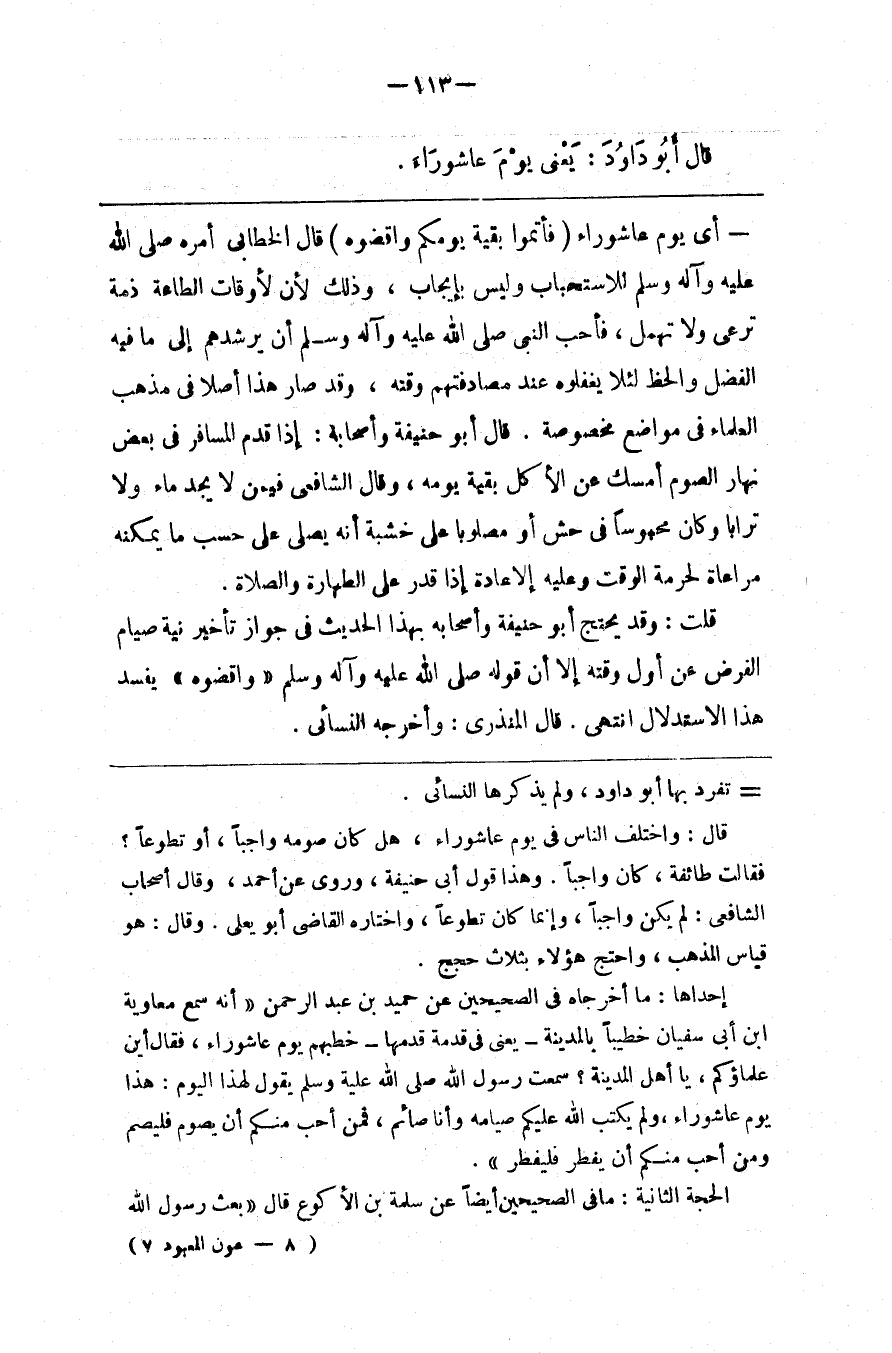 —١١٣—
قال أَبُو دَاوُدَ : يَعْنى يوْمَ عاشورَاءَ .
— أى يوم عاشوراء ( فأتموا بقية يومكم واقضوه ) قال الخطابى أمره صلى الله
عليه وآله وسلم للاستحباب وليس بإيجاب ، وذلك لأن لأوقات الطاعة ذمة
ترعى ولا تهمل ، فأحب النبى صلى الله عليه وآله وسلم أن يرشدهم إلى ما فيه
الفضل والحظ لئلا يغفلوه عند مصادفتهم وقته ، وقد صار هذا أصلا فى مذهب
العلماء فى مواضع مخصوصة . قال أبو حنيفة وأصحابة : إذا قدم المسافر فى بعض
نهار الصوم أمسك عن الأكل بقية يومه ، وقال الشافعى فيمن لا يجد ماء ولا
ترابا وكان محبوساً فى حش أو مصلوبا على خشبة أنه يصلى على حسب ما يمكنه
مراعاة لحرمة الوقت وعليه الاعادة إذا قدر على الطهارة والصلاة .
قلت : وقد يحتج أبو حنيفة وأصحابه بهذا الحديث فى جواز تأخير نية صيام
الفرض عن أول وقته إلا أن قوله صلى الله عليه وآله وسلم « واقضوه » يفسد
هذا الاستدلال انتهى . قال المنذرى : وأخرجه النسائى .
= تفرد بها أبو داود ، ولم يذكرها النسائى .
قال : واختلف الناس فى يوم عاشوراء ، هل كان صومه واجباً ، أو تطوعاً ؟
فقالت طائفة ، كان واجباً . وهذا قول أبى حنيفة ، وروى عن أحمد ، وقال أصحاب
الشافعى : لم يكن واجباً ، وإنما كان تطوعاً ، واختاره القاضى أبو يعلى . وقال : هو
قياس المذهب ، واحتج هؤلاء بثلاث حجج .
إحداها : ما أخرجاه فى الصحيحين عن حميد بن عبد الرحمن « أنه سمع معاوية
ابن أبى سفيان خطيباً بالمدينة – يعنى فى قدمة قدمها – خطبهم يوم عاشوراء ، فقال أين
علماؤكم ، يا أهل المدينة ؟ سمعت رسول الله صلى الله علية وسلم يقول لهذا اليوم : هذا
يوم عاشوراء ، ولم يكتب الله عليكم صيامه وأنا صائم ، فمن أحب منكم أن يصوم فليصم
ومن أحب منكم أن يفطر فليفطر » .
الحجة الثانية : مافى الصحيحين أيضاً عن سلمة بن الأكوع قال « بعث رسول الله
( ٨ — عون المعبود ٧ )